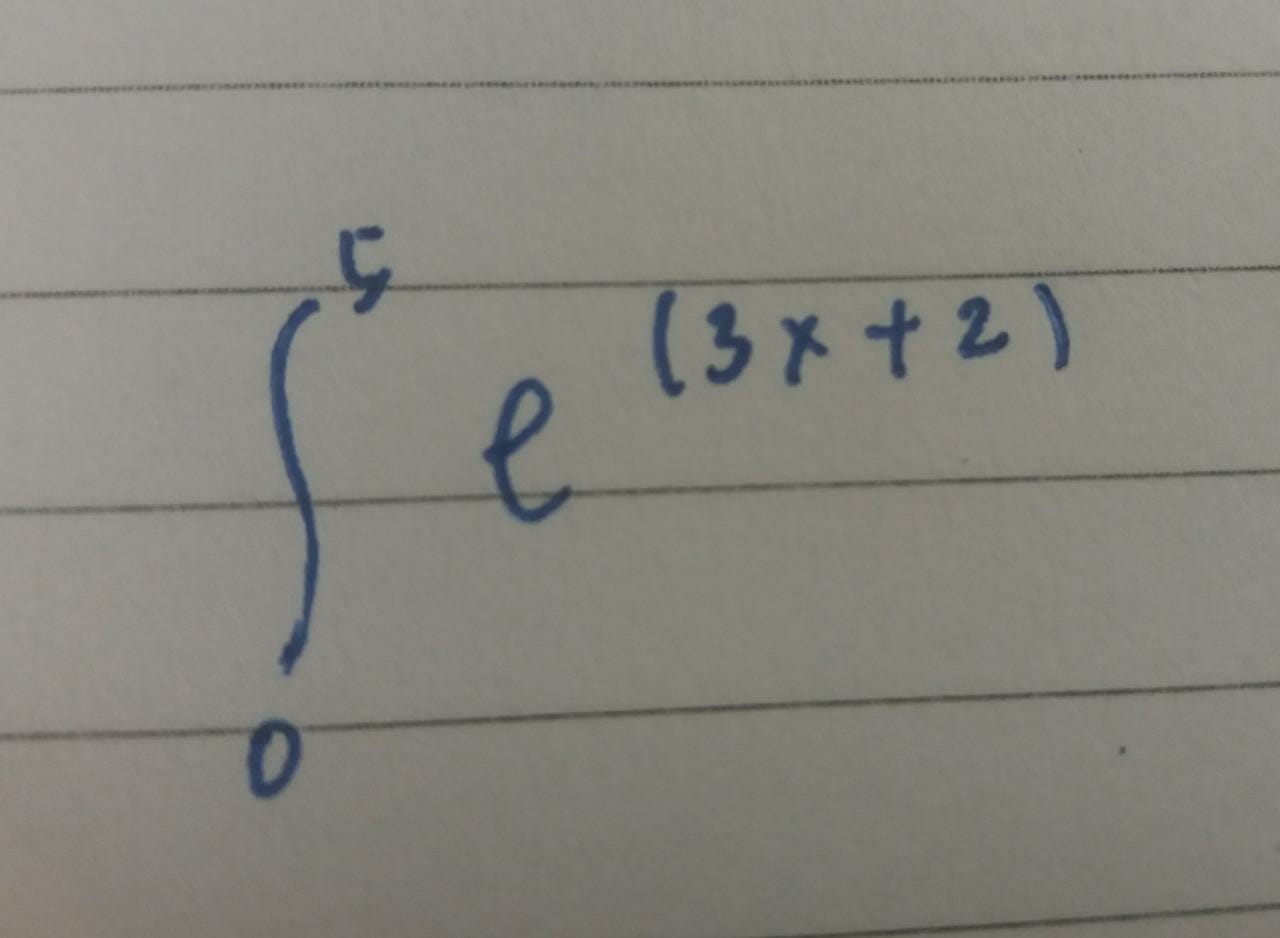 ∫₀⁵ e^(3x+2)